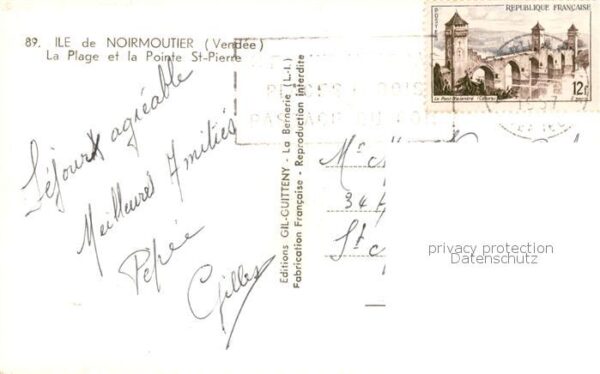 89. ILE de NOIRMOUTIER (Vendée)
La Plage et la Pointe St-Pierre
Séjour agréable
Meilleures Amitiés
Pépée
Gilles
Editions GIL-GUITTENY - La Bernerie (L.-I.)
Fabrication Française - Reproduction Interdite
REPUBLIQUE FRANÇAISE
POSTES
Le Pont Valentré (Cahors)
12F
PLAGES
BOIS
PASSAGE DU GOIS
1957
Mr
34
St
privacy protection
Datenschutz